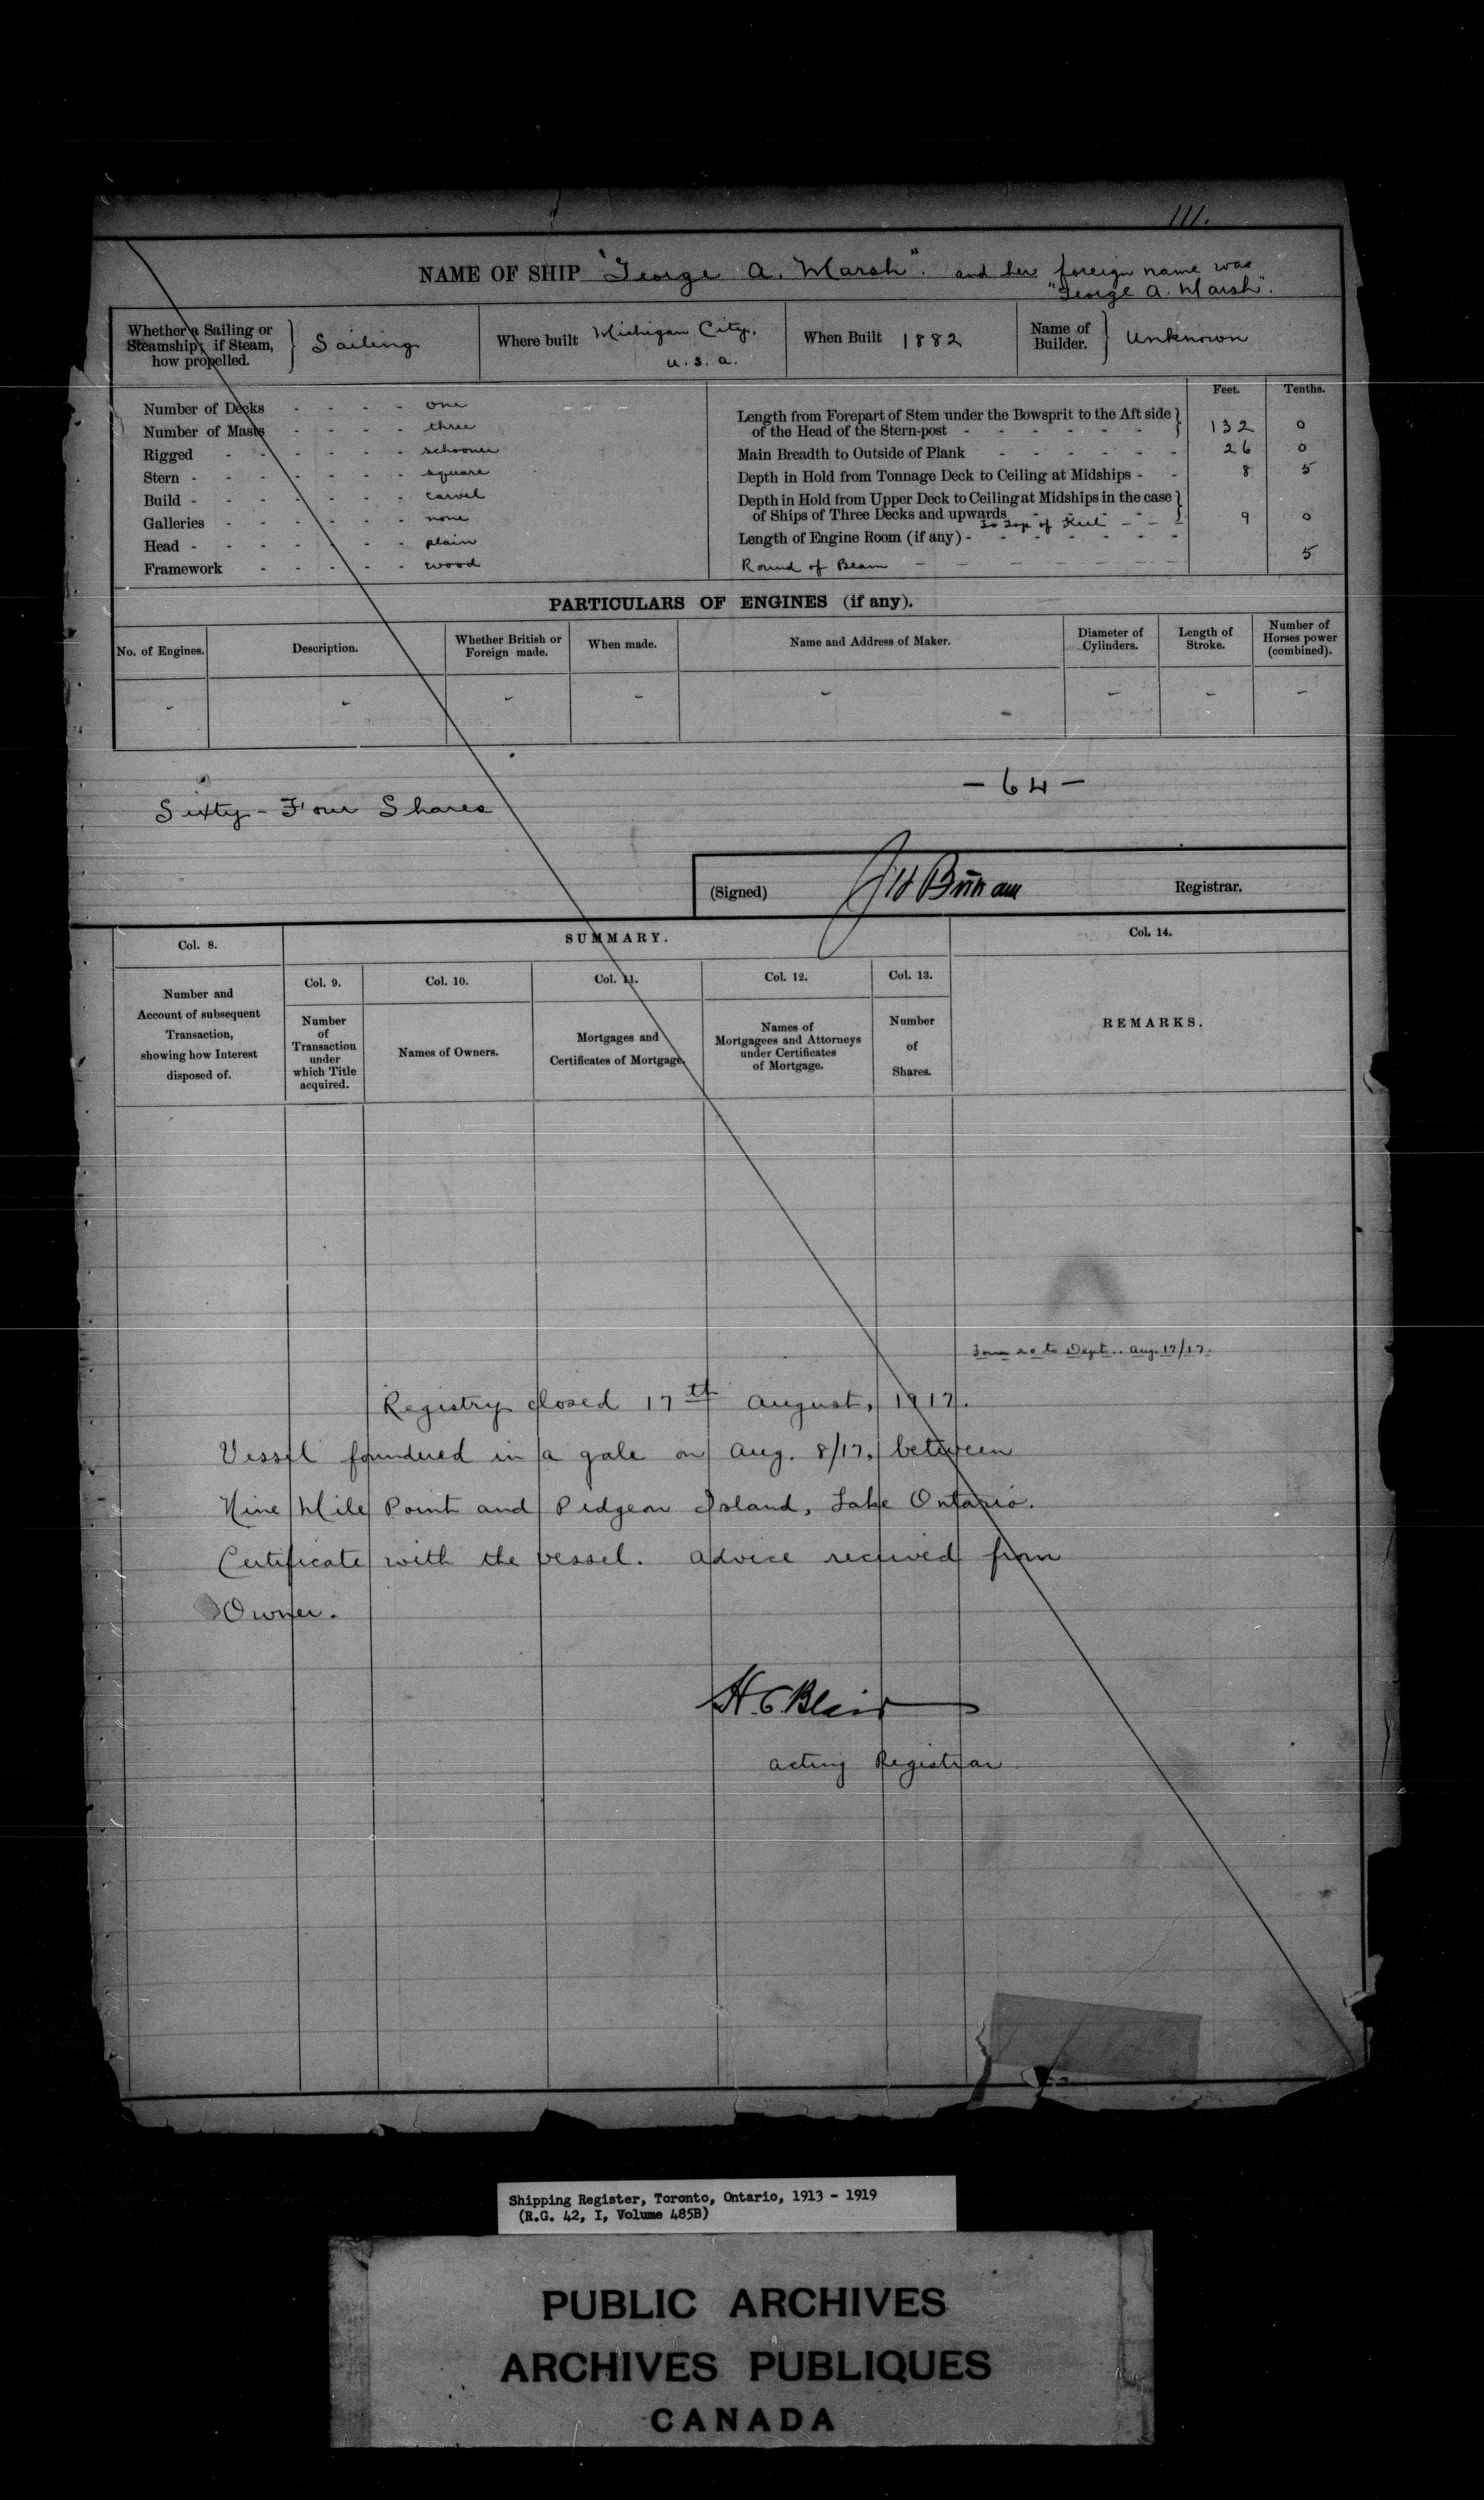 111.
NAME OF SHIP "George A. Marsh". and her foreign name was
"George A. Marsh".
Whether a Sailing or Steamship; if Steam, how propelled. } Sailing
Where built Michigan City, U.S.A.
When Built 1882
Name of Builder. } Unknown
Feet. Tenths.
Number of Decks - - - - one
Number of Masts - - - - three
Rigged - - - - - - schooner
Stern - - - - - - - square
Build - - - - - - - carvel
Galleries - - - - - - none
Head - - - - - - - plain
Framework - - - - - wood
Length from Forepart of Stem under the Bowsprit to the Aft side }
of the Head of the Stern-post - - - - - - } 132 0
Main Breadth to Outside of Plank - - - - - - 26 0
Depth in Hold from Tonnage Deck to Ceiling at Midships - - 8 5
Depth in Hold from Upper Deck to Ceiling at Midships in the case }
of Ships of Three Decks and upwards - - - - - } 9 0
To Top of Keel - - -
Length of Engine Room (if any) - - - - - - -
Round of Beam - - - - - - - 5
PARTICULARS OF ENGINES (if any).
No. of Engines. Description. Whether British or Foreign made. When made. Name and Address of Maker. Diameter of Cylinders. Length of Stroke. Number of Horses power (combined).
- - - - - - - -
- 64 -
Sixty-Four Shares
(Signed) Registrar.
Col. 8. SUMMARY. Col. 14.
Col. 9. Col. 10. Col. 11. Col. 12. Col. 13.
Number and Account of subsequent Transaction, showing how Interest disposed of.
Number of Transaction under which Title acquired.
Names of Owners.
Mortgages and Certificates of Mortgage.
Names of Mortgagees and Attorneys under Certificates of Mortgage.
Number of Shares.
REMARKS.
Form 20 to Dept.. Aug. 17/17.
Registry closed 17th August, 1917.
Vessel foundered in a gale on Aug. 8/17, between
Nine Mile Point and Pidgeon Island, Lake Ontario.
Certificate with the vessel. Advice received from
Owner.
H.C. Blair
Acting Registrar
Shipping Register, Toronto, Ontario, 1913 - 1919
(R.G. 42, I, Volume 485B)
PUBLIC ARCHIVES
ARCHIVES PUBLIQUES
CANADA